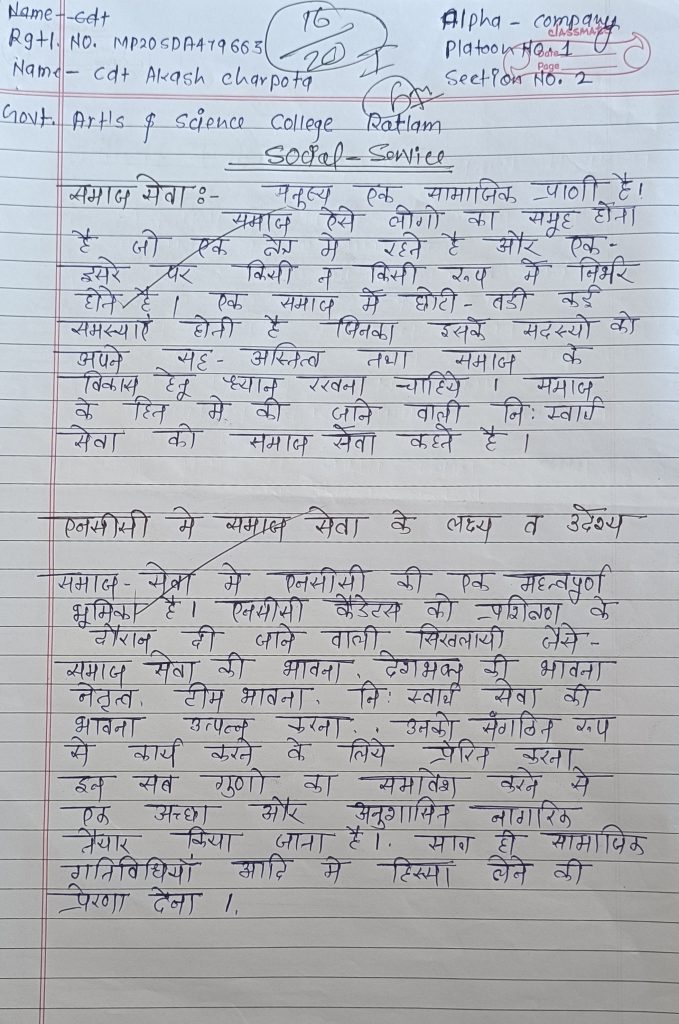 Name - Cdt
Rgtl. NO. MP20SDA479663
Name - Cdt Akash Charpota
16/20 I
Alpha - Company
CLASSMATE
Platoon NO. 1
Date
Page
Section NO. 2
Govt. Arts & Science College Ratlam
Social - Service
समाज सेवा :- मनुष्य एक सामाजिक प्राणी है।
समाज ऐसे लोगो का समूह होता
है जो एक क्षेत्र मे रहते है और एक-
दूसरे पर किसी न किसी रूप में निर्भर
होते है। एक समाज में छोटी - बडी कई
समस्याएं होती है जिनका इसके सदस्यो को
अपने सह - अस्तित्व तथा समाज के
विकास हेतू ध्यान रखना चाहिये । समाज
के हित मे की जाने वाली नि: स्वार्थ
सेवा को समाज सेवा कहते है ।
एनसीसी मे समाज सेवा के लक्ष्य व उदेश्य
समाज - सेवा मे एनसीसी की एक महत्वपुर्ण
भूमिका है। एनसीसी कैडेटस को प्रशिक्षण के
दौरान दी जाने वाली सिखलायी जैसे -
समाज सेवा की भावना, देशभक्त की भावना
नेतृत्व, टीम भावना, नि: स्वार्थ सेवा की
भावना उत्पन्न करना, उनको संगठित रूप
से कार्य करने के लिये प्रेरित करना
इन सब गुणो का समावेश करने से
एक अच्छा और अनुशासित नागरिक
तैयार किया जाता है। साथ ही सामाजिक
गतिविधियों आदि मे हिस्सा लेने की
प्रेरणा देना ।